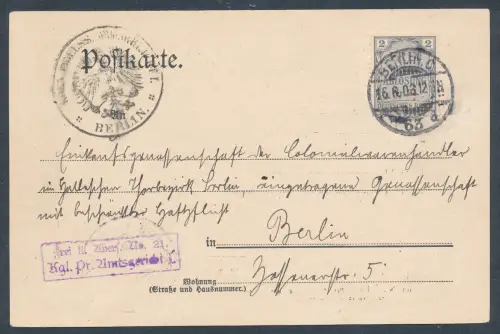 Postkarte.
BERLIN.
2
BERLIN C.
16. 6. 03. 12
Einkaufsgenossenschaft der Colonialwarenhändler
im Halleschen Thorbezirk Berlin, eingetragene Genossenschaft
mit beschränkter Haftpflicht
in Berlin
Frei lt. Avers. No. 21
Kgl. Pr. Amtsgericht I.
Zossenerstr. 5.
Wohnung
(Straße und Hausnummer.)